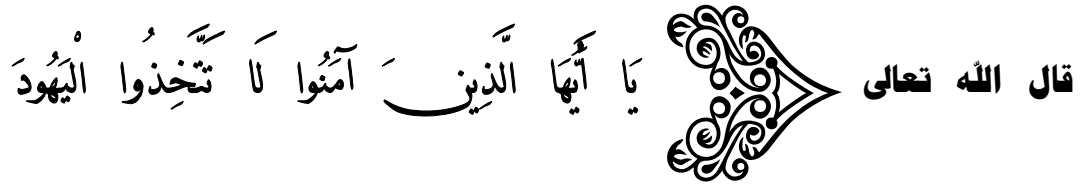 قال الله تعالى يَا أَيُّهَا الَّذِينَ آمَنُوا لَا تَتَّخِذُوا الْيَهُودَ